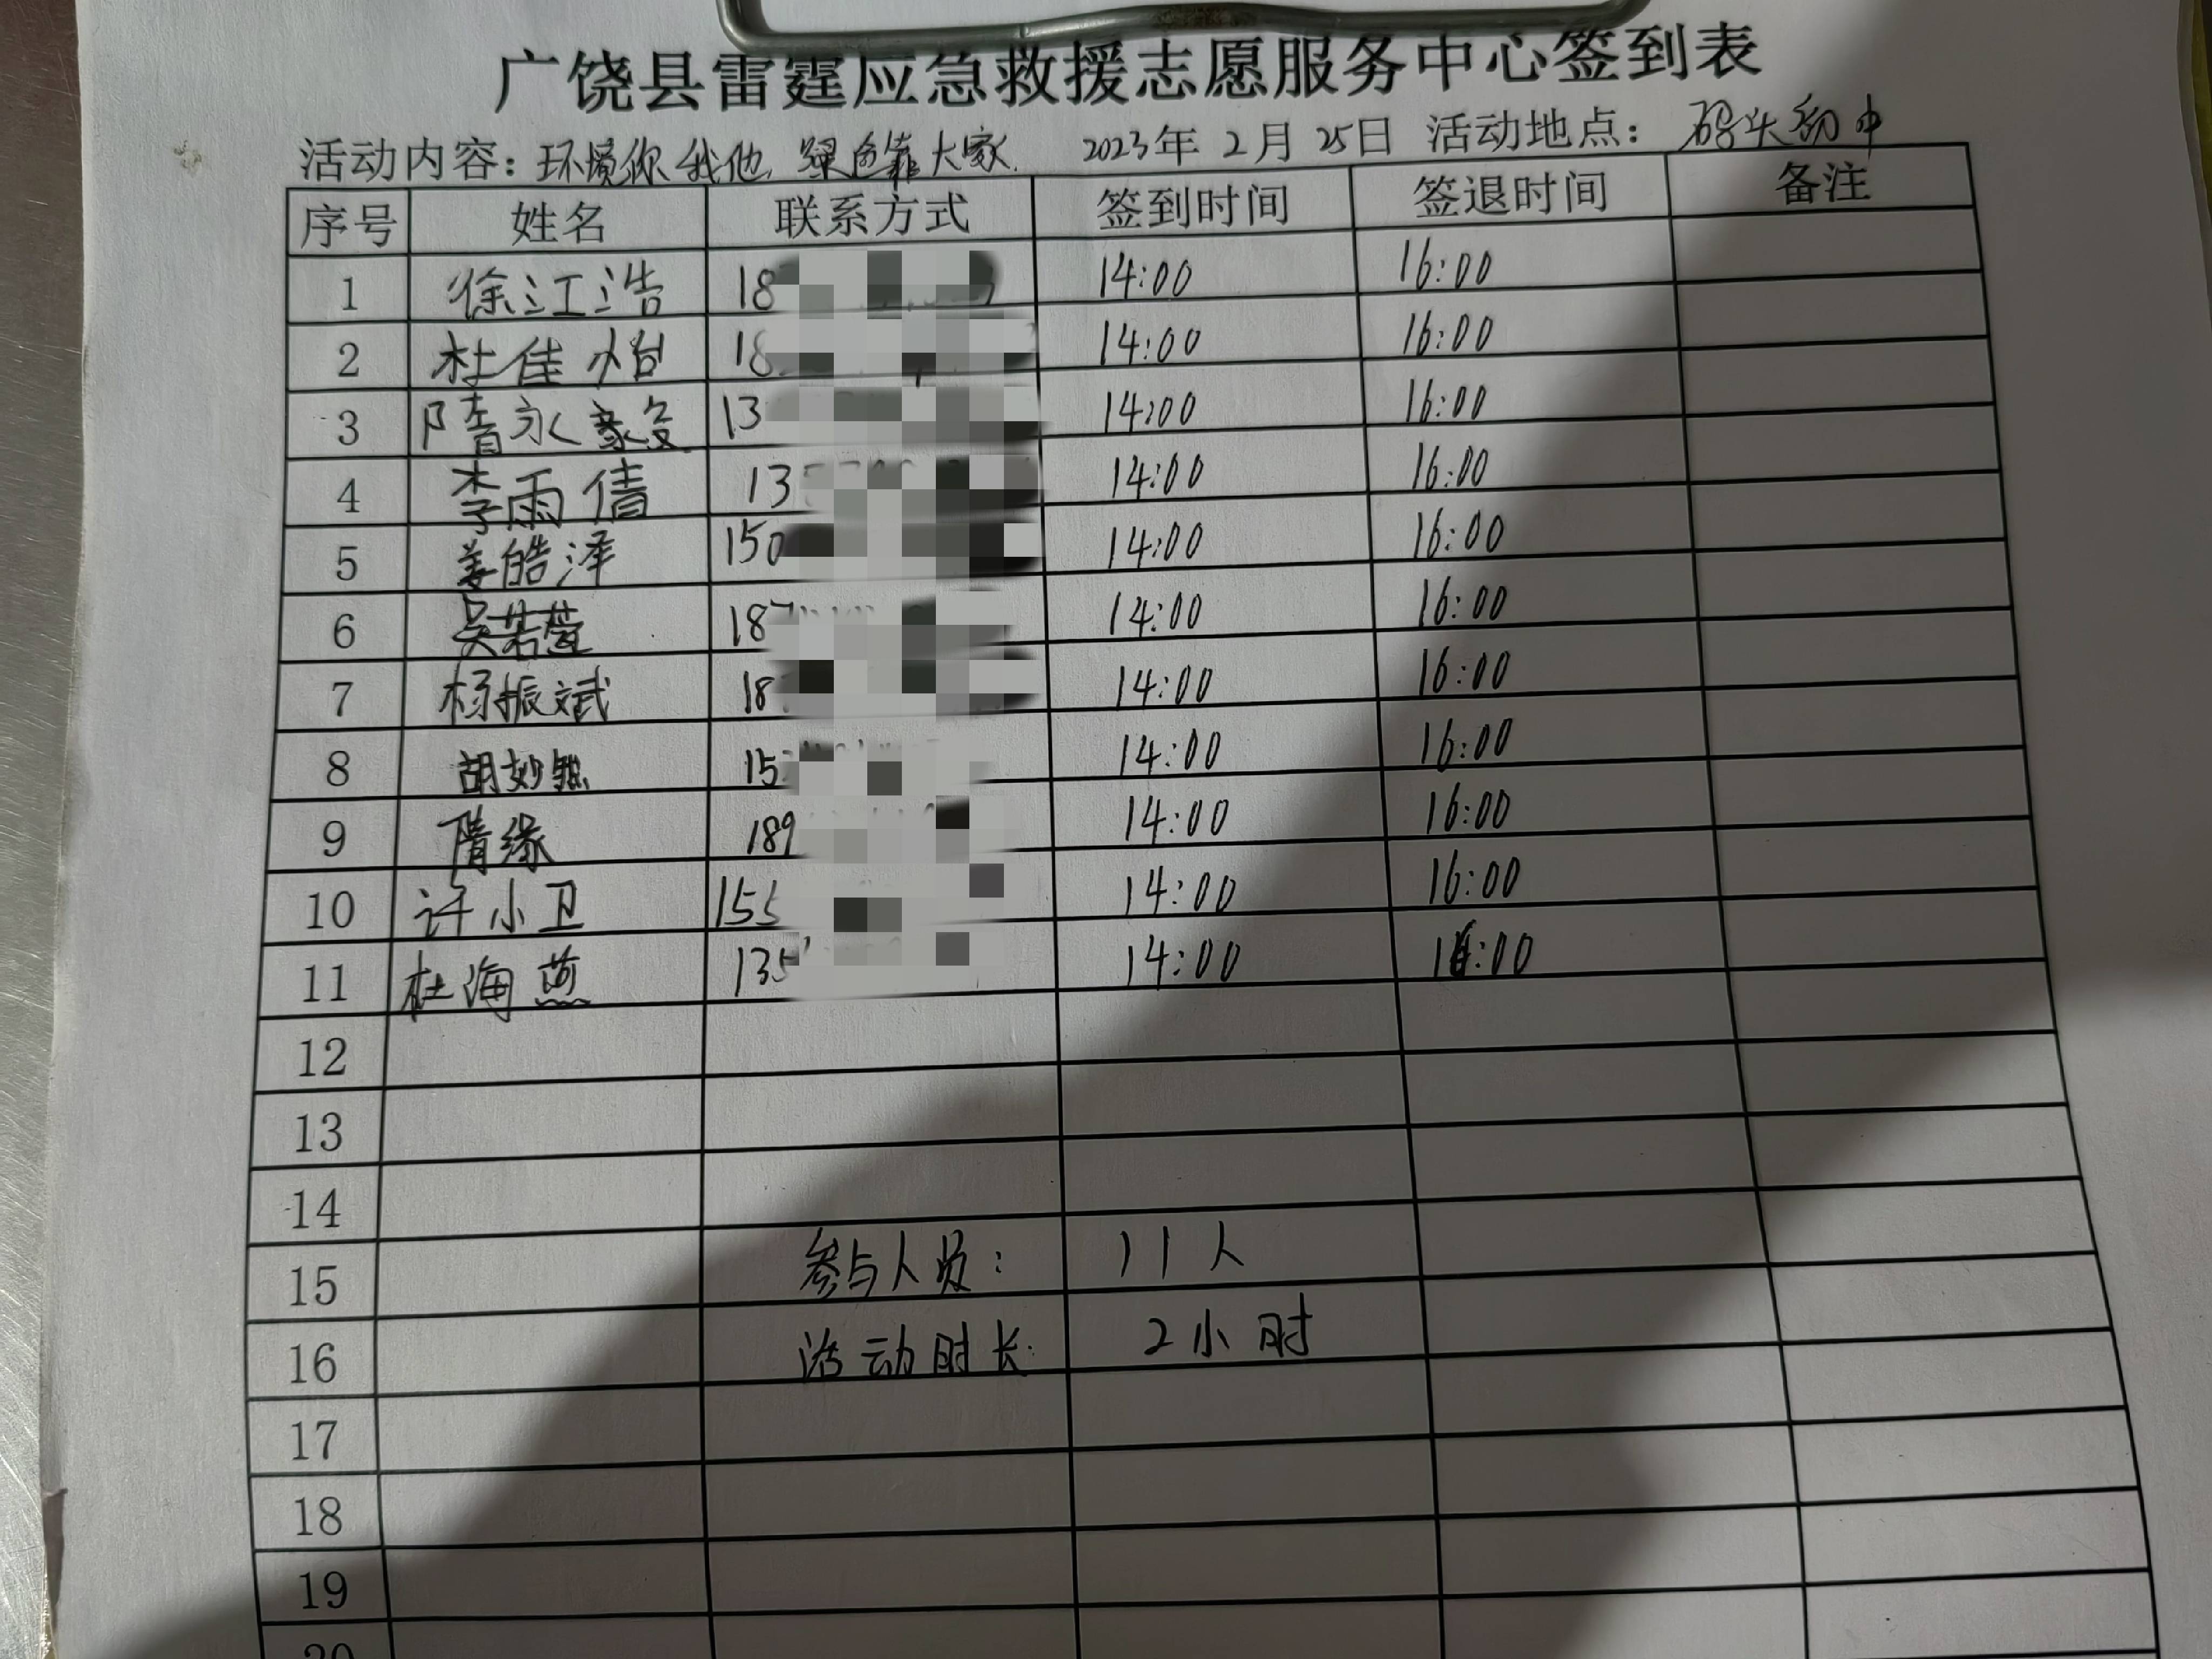 广饶县雷霆应急救援志愿服务中心签到表
活动内容：环境你我他，绿色靠大家. 2023年 2月 25日 活动地点：码头初中
序号 姓名 联系方式 签到时间 签退时间 备注
1 徐江浩 18 14:00 16:00
2 杜佳怡 18 14:00 16:00
3 隋永 13 14:00 16:00
4 李雨倩 13 14:00 16:00
5 姜皓泽 150 14:00 16:00
6 吴若萱 187 14:00 16:00
7 杨振斌 18 14:00 16:00
8 胡妙然 15 14:00 16:00
9 隋缘 189 14:00 16:00
10 许小卫 155 14:00 16:00
11 杜海燕 135 14:00 16:00
12
13
14
15 参与人员： 11人
16 活动时长： 2小时
17
18
19
20